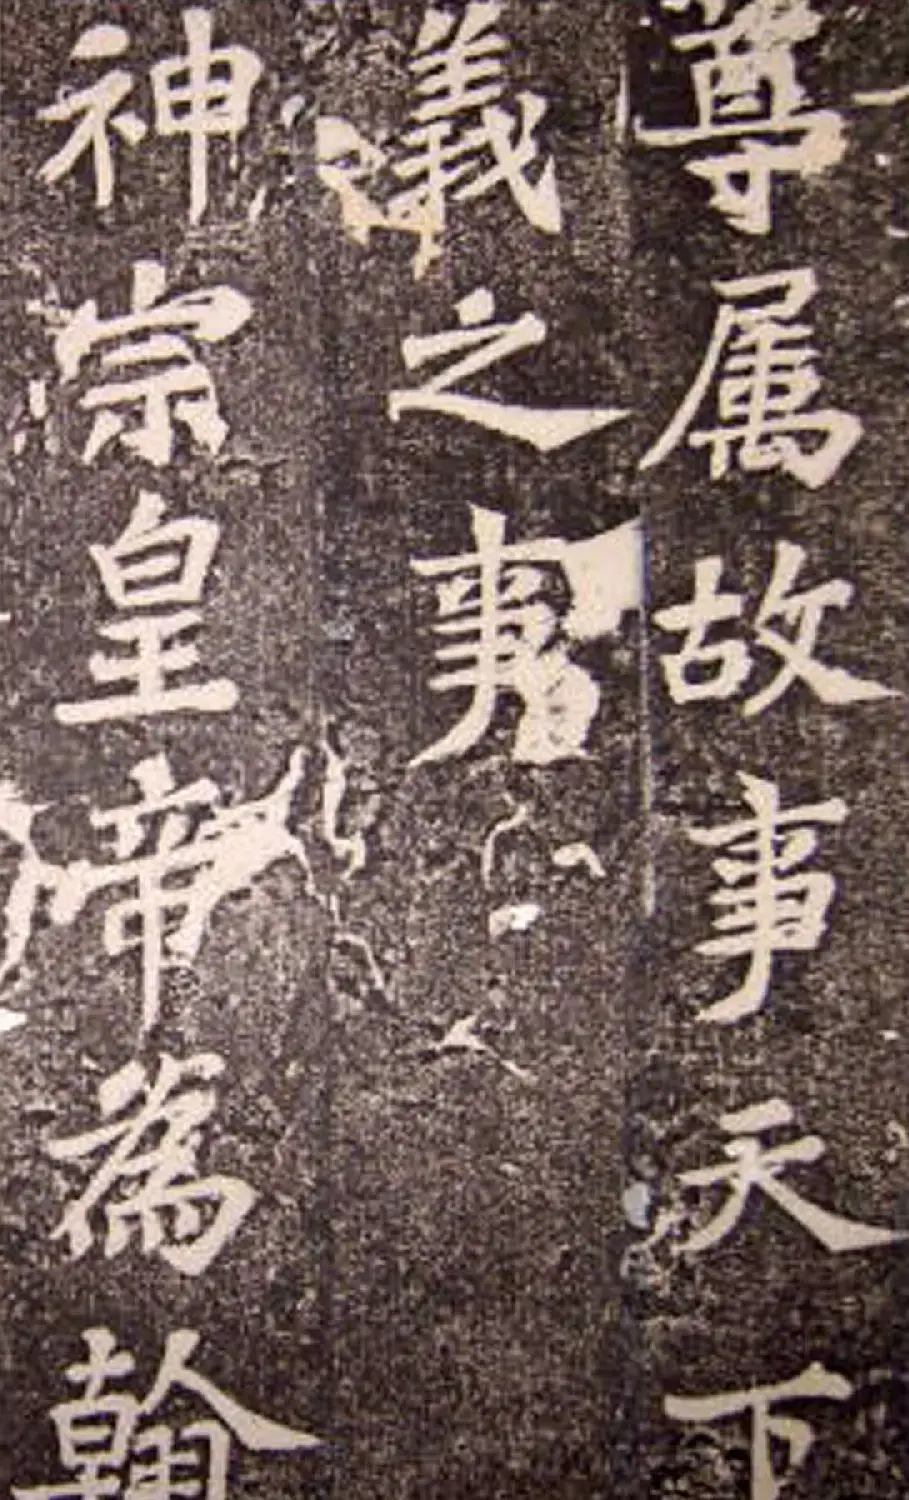 尊属故事天下
義之事
神宗皇帝為翰